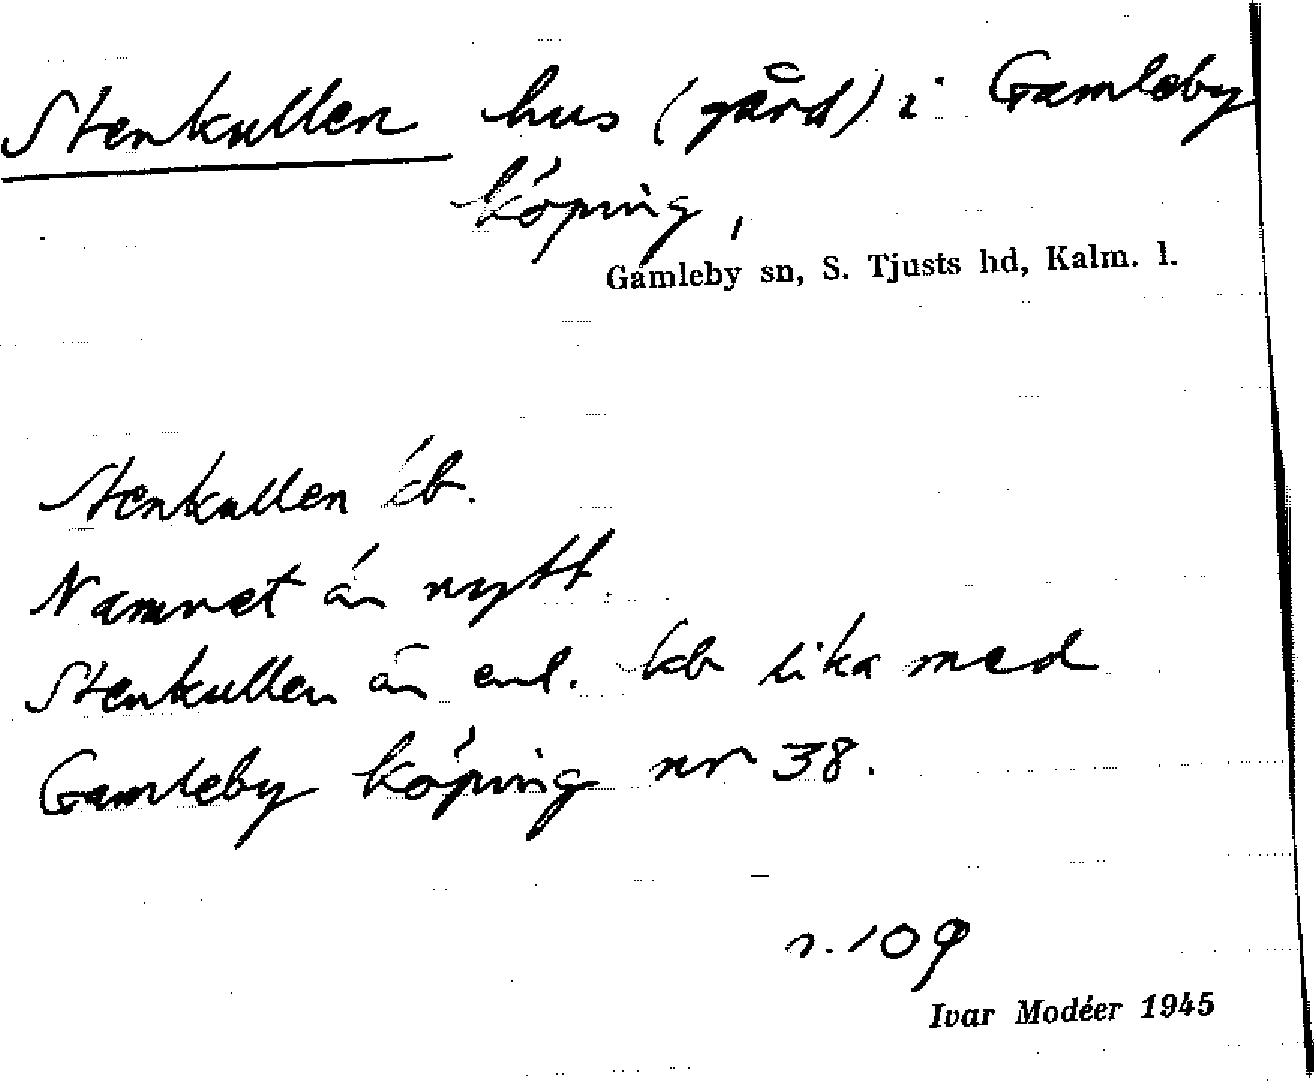 Stenkullen hus (gård) i Gamleby
köping,
Gamleby sn, S. Tjusts hd, Kalm. l.
Stenkullen öb.
Namnet är nytt.
Stenkullen är enl. kb lika med
Gamleby köping nr 38.
r. 109
Ivar Modéer 1945